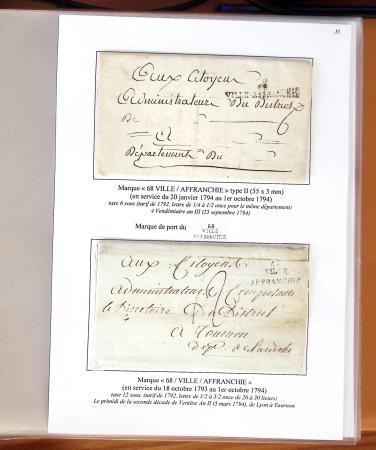 Aux Citoyens
68
VILLE-AFFRANCHIE
Administrateurs Du District
De
6
Département Du
Marque « 68 VILLE / AFFRANCHIE » type II (55 x 3 mm)
(en service du 20 janvier 1794 au 1er octobre 1794)
taxe 6 sous (tarif de 1792, lettre de 1/4 à 1/2 once pour le même département)
4 Vendémiaire an III (25 septembre 1794)
Marque de port dû
68
VILLE
AFFRANCHIE
Aux Citoyens
68
VILLE
AFFRANCHIE
Administrateurs Composants
le Directoire Du District
A Tournon
dep. de Lardeche
Marque « 68 / VILLE / AFFRANCHIE »
(en service du 18 octobre 1793 au 1er octobre 1794)
taxe 12 sous, (tarif de 1792, lettre de 1/2 à 3/2 once de 20 à 30 lieues)
Le primidi de la seconde décade de Ventôse An II (5 mars 1794), de Lyon à Tournon